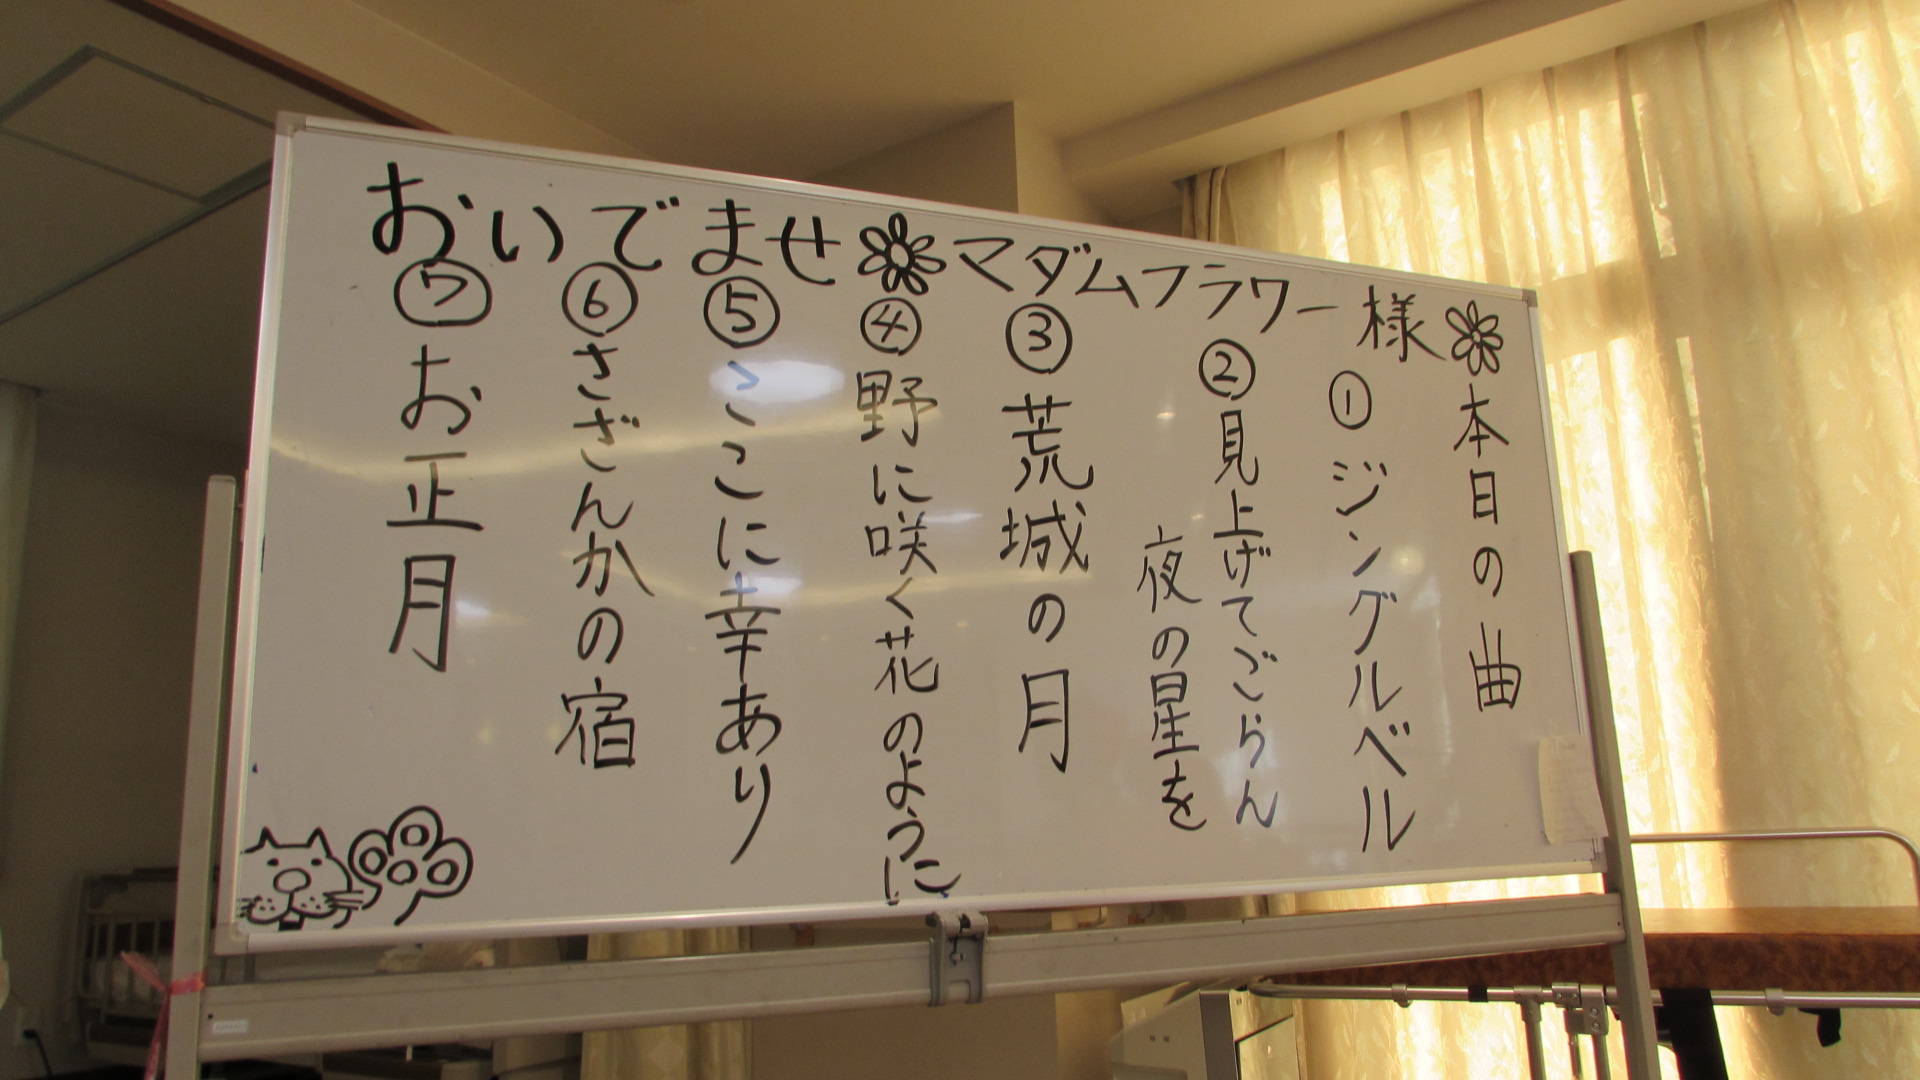 おいでませ❀マダムフラワー様
❀本日の曲
①ジングルベル
②見上げてごらん
夜の星を
③荒城の月
④野に咲く花のように
⑤ここに幸あり
⑥さざんかの宿
⑦お正月